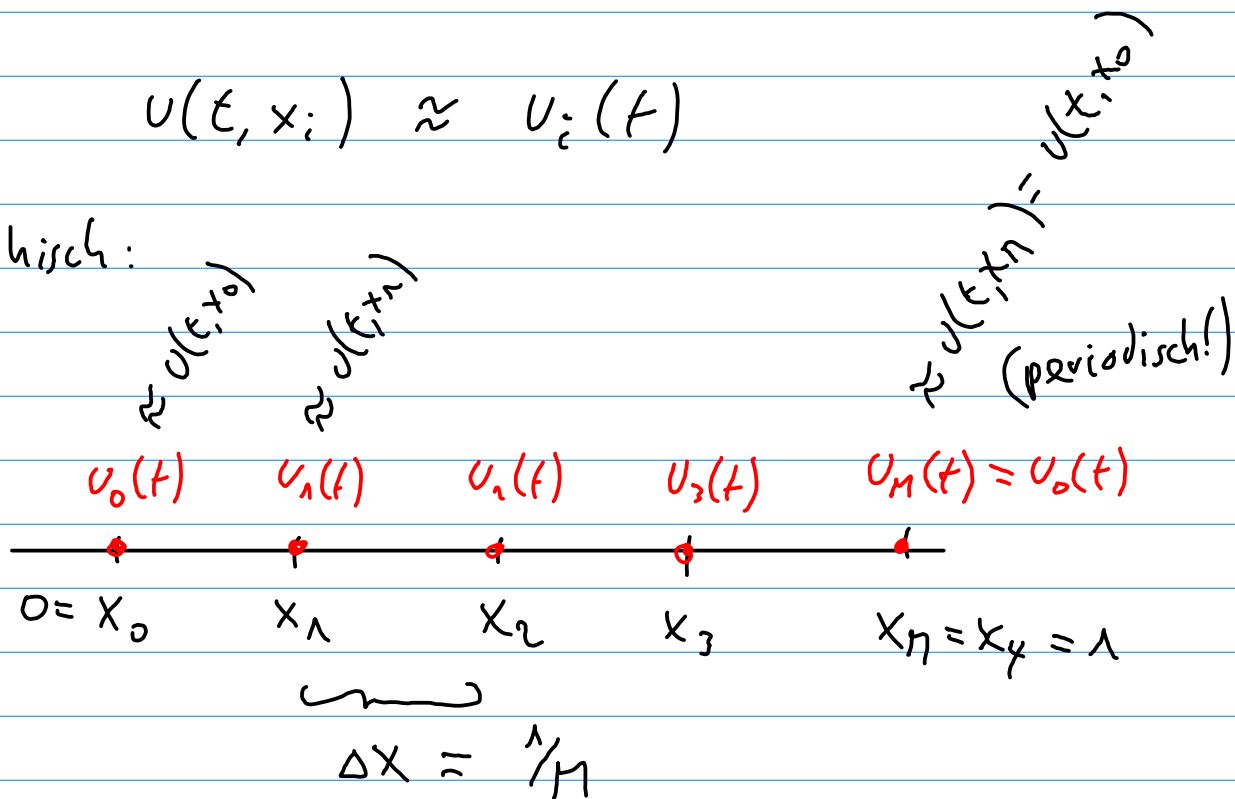 u(t, x_i) ≈ u_i(t)
hisch:
≈ u(t, x_0)
≈ u(t, x_1)
≈ u(t, x_M) = u(t, x_0)
(periodisch!)
u_0(t) u_1(t) u_2(t) u_3(t) u_M(t) = u_0(t)
0 = x_0 x_1 x_2 x_3 x_M = x_4 = 1
Δx = 1/M